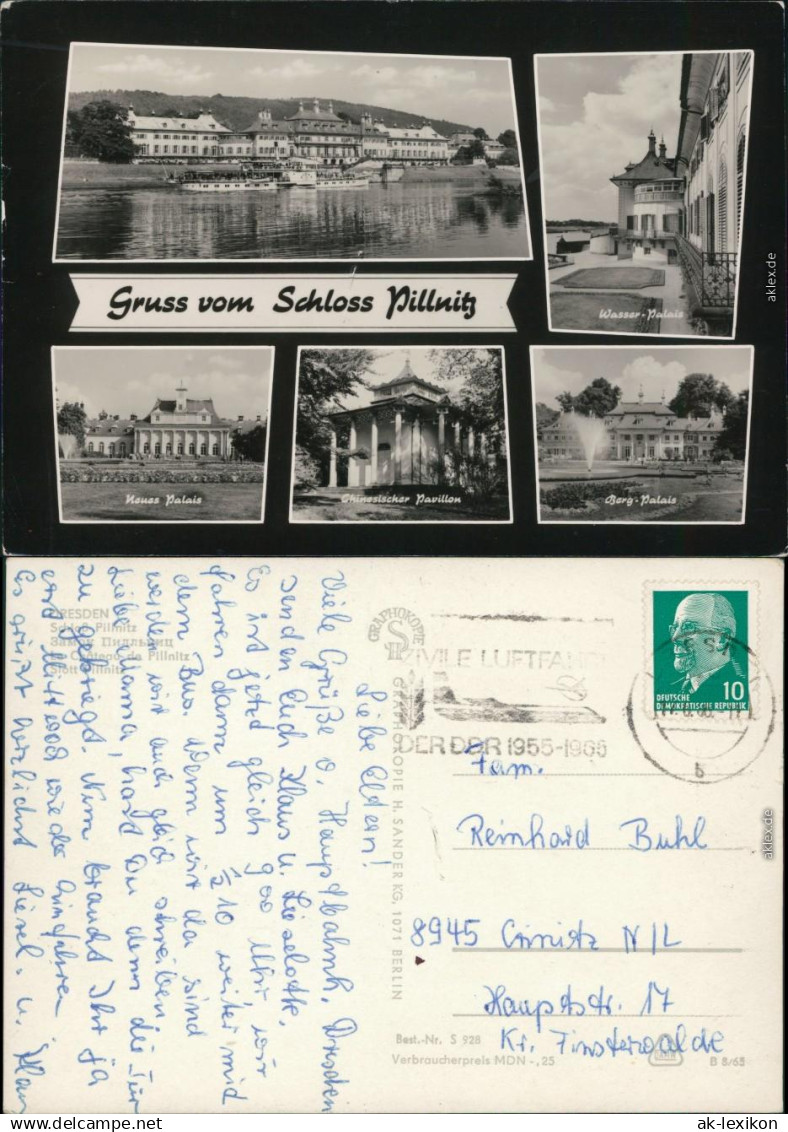 Gruss vom Schloss Pillnitz
Wasser-Palais
Neues Palais
Chinesischer Pavillon
Berg-Palais
aklex.de
DRESDEN
Schloß Pillnitz
Замок Пильниц
Le Château de Pillnitz
Slott Pillnitz
Liebe Eltern!
Viele Grüße v. Hauptbahnh. Dresden
senden Euch Klaus u. Lieselotte.
Es ist jetzt gleich 9oo Uhr wir
fahren dann um ½10 weiter mid
dem Bus. Wenn wir da sind
werden wir auch gleich schreiben
Liebe Mama, hast Du denn die Tür
zu gekriegt. Nun braucht Ihr ja
erst Mittwoch wieder
Es grüßt herzlichst Liesel. u. Klaus
GRAPHOKOPIE
GRAPHOKOPIE H. SANDER KG, 1071 BERLIN
ZIVILE LUFTFAHRT
DER DDR 1955-1965
DEUTSCHE
DEMOKRATISCHE REPUBLIK
10
b
Fam.
Reinhard Buhl
8945 Crinitz N/L
Hauptstr. 17
Kr. Finsterwalde
Best.-Nr. S 928
Verbraucherpreis MDN -,25
B 8/65
aklex.de
ak-lexikon
ak-lexikon.com